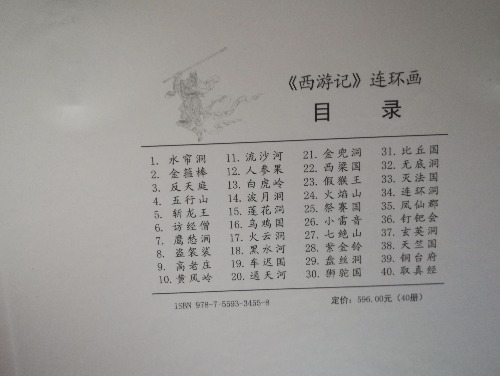 《西游记》连环画
目 录
1. 水帘洞 11. 流沙河 21. 金兜洞 31. 比丘国
2. 金箍棒 12. 人参果 22. 西梁国 32. 无底洞
3. 反天庭 13. 白虎岭 23. 假猴王 33. 灭法国
4. 五行山 14. 波月洞 24. 火焰山 34. 连环洞
5. 斩龙王 15. 莲花洞 25. 祭赛国 35. 凤仙郡
6. 访经僧 16. 乌鸡国 26. 小雷音 36. 钉钯会
7. 鹰愁涧 17. 火云洞 27. 七绝山 37. 玄英洞
8. 盗袈裟 18. 黑水河 28. 紫金铃 38. 天竺国
9. 高老庄 19. 车迟国 29. 盘丝洞 39. 铜台府
10. 黄风岭 20. 通天河 30. 狮驼国 40. 取真经
ISBN 978-7-5593-3455-8 定价：596.00元（40册）